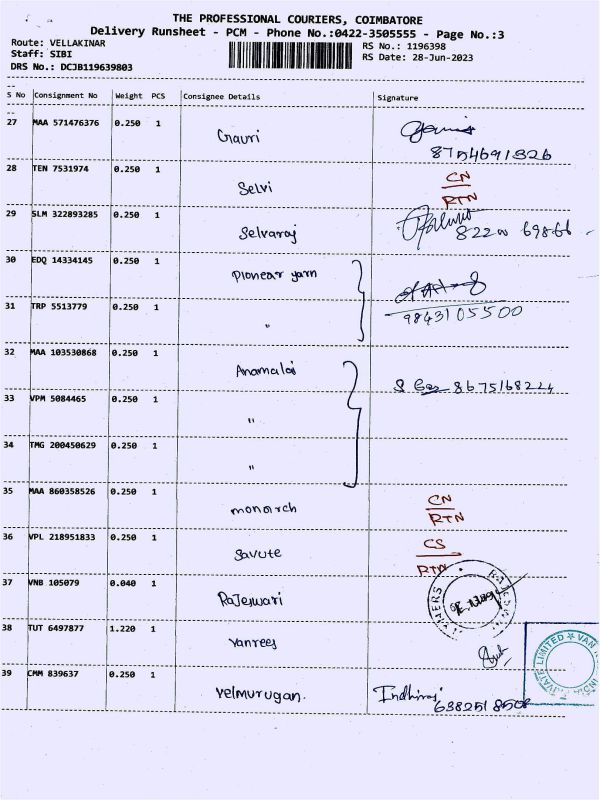 THE PROFESSIONAL COURIERS, COIMBATORE
Delivery Runsheet - PCM - Phone No.:0422-3505555 - Page No.:3
Route: VELLAKINAR RS No.: 1196398
Staff: SIBI RS Date: 28-Jun-2023
DRS No.: DCJB119639803
S No Consignment No Weight PCS Consignee Details Signature
27 MAA 571476376 0.250 1 Gauri
28 TEN 7531974 0.250 1 Selvi CN RTN
29 SLM 322893285 0.250 1 Selvaraj 82200 69866
30 EDQ 14334145 0.250 1 Pionear yarn
31 TRP 5513779 0.250 1 " 9843105500
32 MAA 103530868 0.250 1 Anamalai 8675168224
33 VPM 5084465 0.250 1 "
34 TMG 200450629 0.250 1 "
35 MAA 860358526 0.250 1 monarch CN RTN
36 VPL 218951833 0.250 1 Savute CS RTN
37 VNB 105079 0.040 1 Rajeswari
38 TUT 6497877 1.220 1 Vanrees
39 CMM 839637 0.250 1 Velmurugan. Indhiraj 6382518508
VATE LIMITED ★ VAN